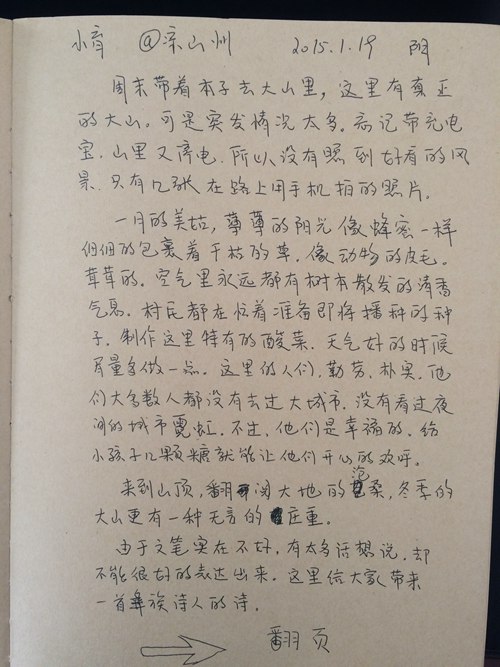 小育 @凉山州 2015.1.19 阴
周末带着本子去大山里，这里有真正
的大山。可是突发情况太多。忘记带充电
宝，山里又停电，所以没有照到好看的风
景，只有几张在路上用手机拍的照片。
一月的美姑，薄薄的阳光像蜂蜜一样
细细的包裹着干枯的草，像动物的皮毛。
茸茸的。空气里永远都有树木散发的清香
气息。村民都在忙着准备即将播种的种
子，制作这里特有的酸菜。天气好的时候
尽量多做一点。这里的人们，勤劳、朴实。他
们大多数人都没有去过大城市，没有看过夜
间的城市霓虹。不过，他们是幸福的，给
小孩子几颗糖就能让他们开心的欢呼。
来到山顶，翻阅大地的沧桑，冬季的
大山更有一种无言的庄重。
由于文笔实在不好，有太多话想说，却
不能很好的表达出来。这里给大家带来
一首彝族诗人的诗。
翻页